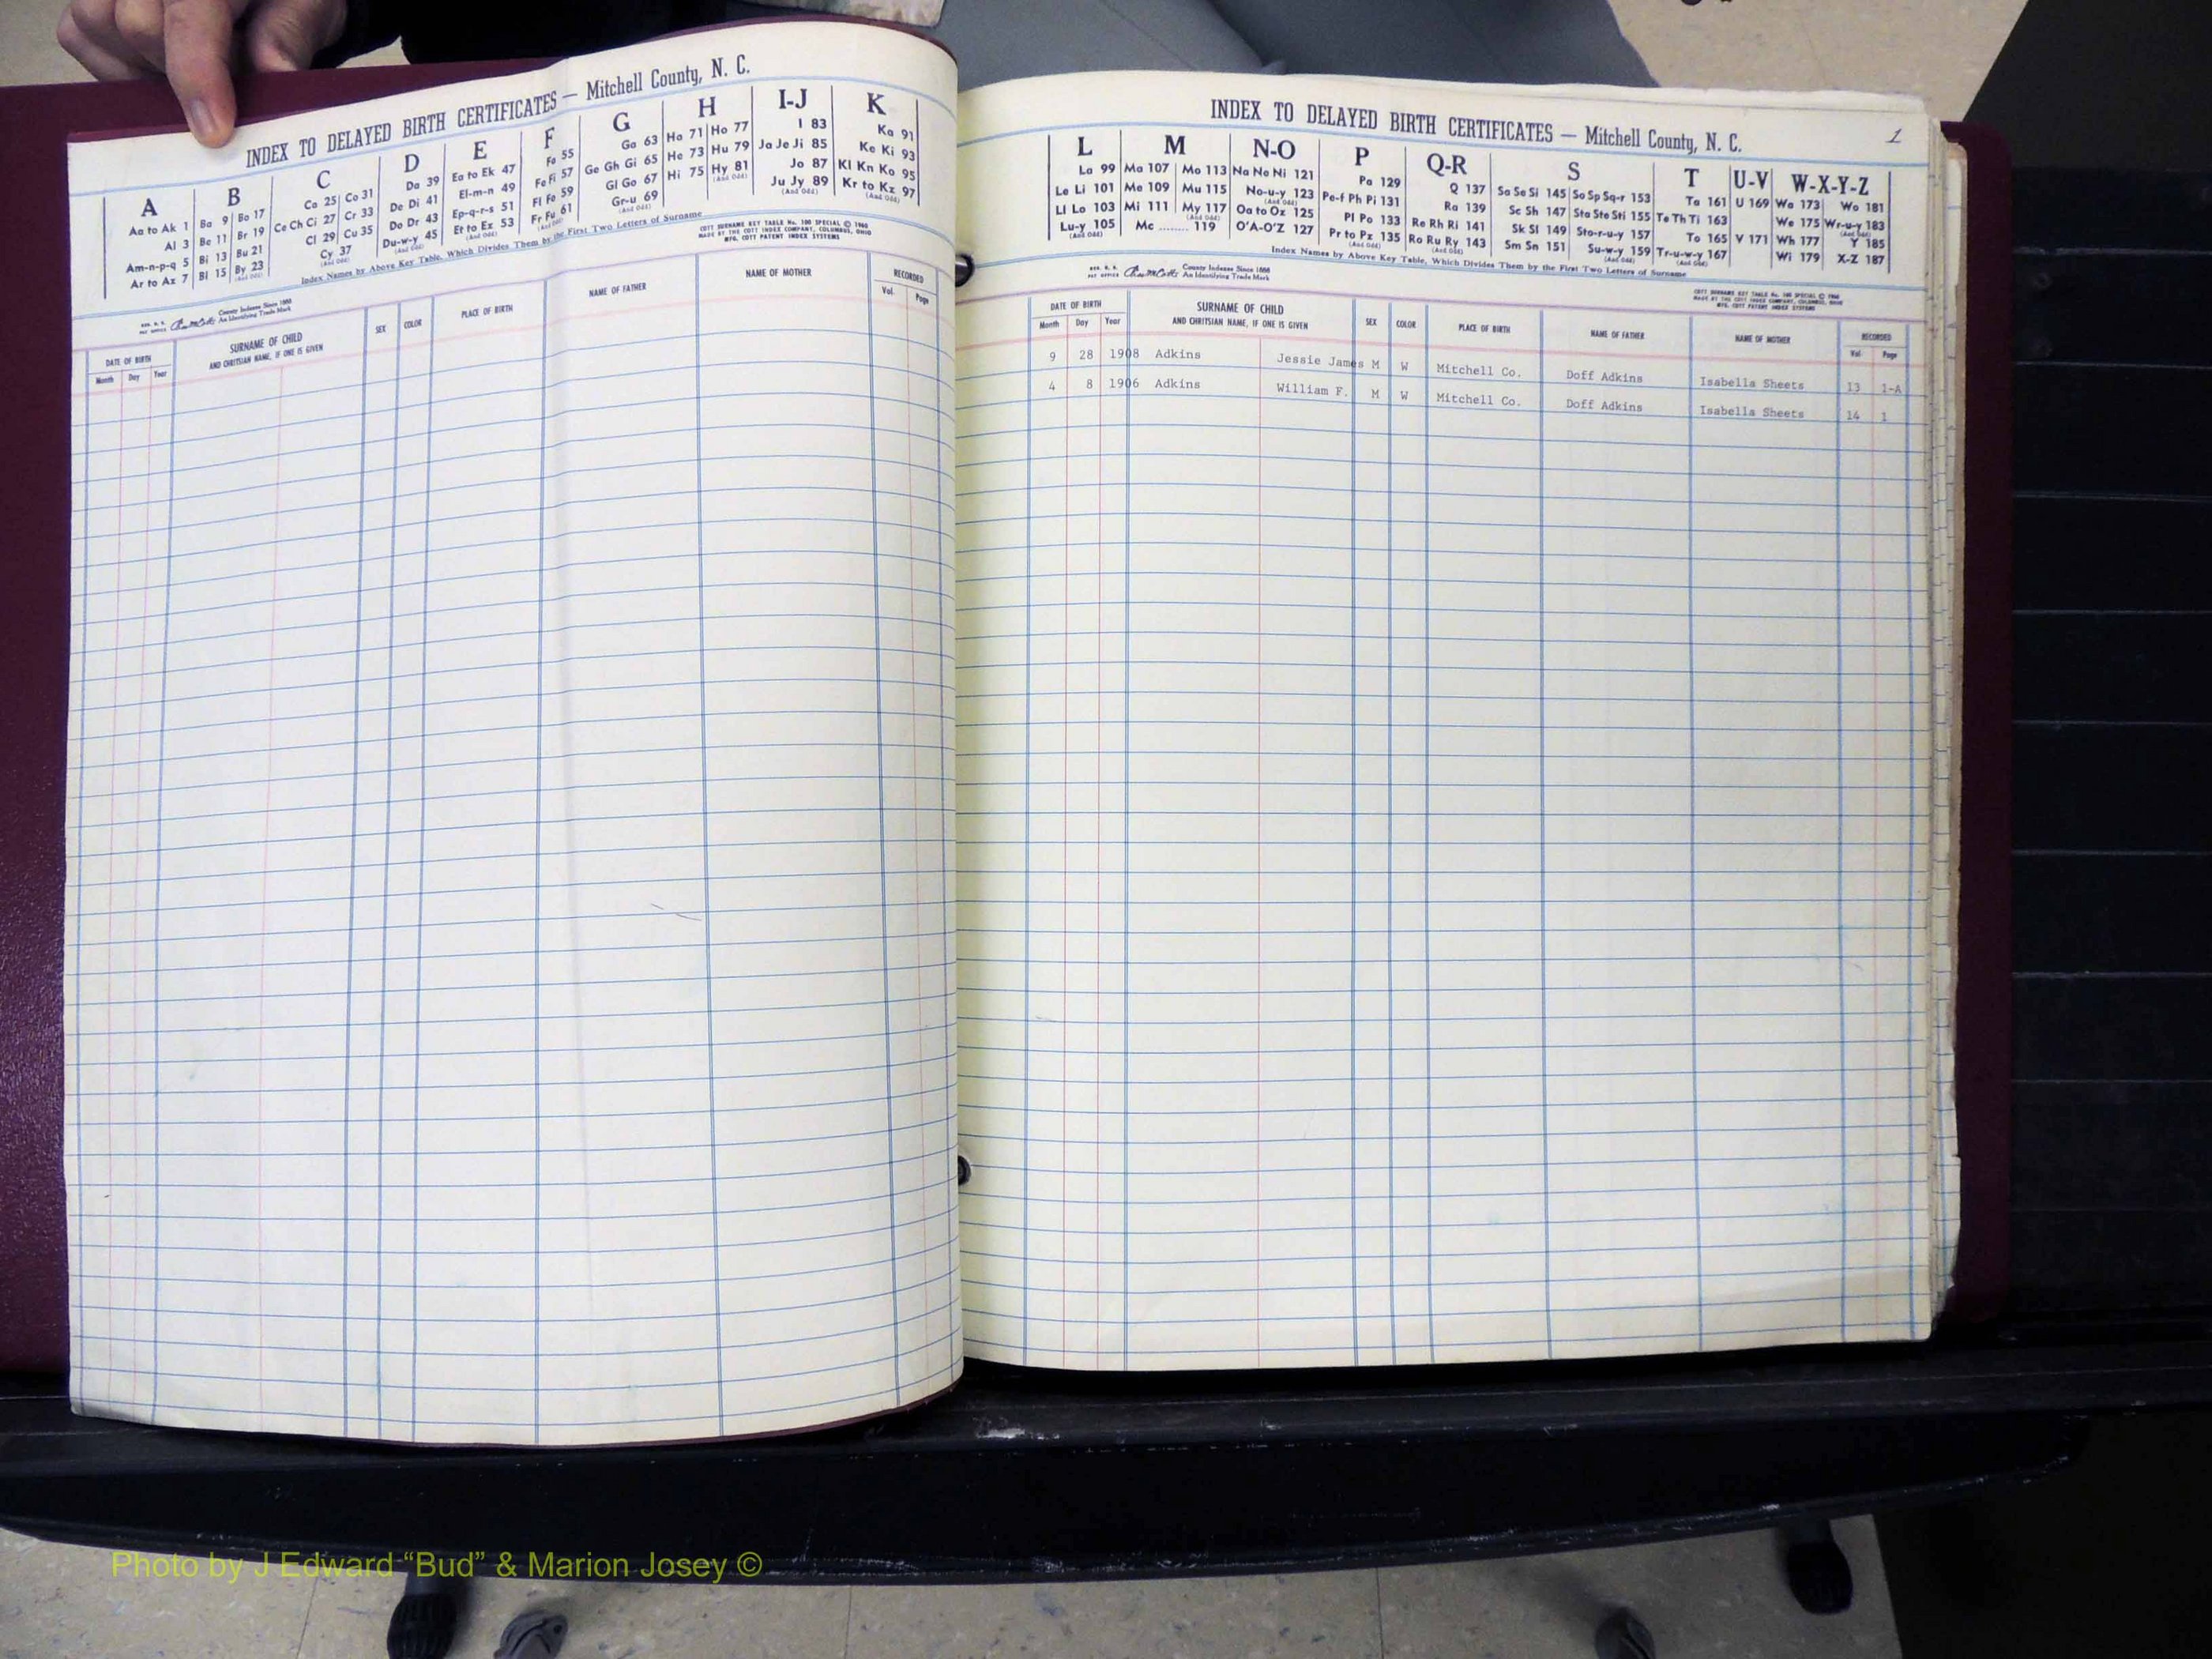 INDEX TO DELAYED BIRTH CERTIFICATES — Mitchell County, N. C.
A B C D E F G H I-J K
Aa to Ak 1
Al 3
Am-n-p-q 5
Ar to Az 7
Ba 9 Bo 17
Be 11 Br 19
Bi 13 Bu 21
Bl 15 By 23
(And Odd)
Ca 25 Co 31
Ce Ch Ci 27 Cr 33
Cl 29 Cu 35
Cy 37
(And Odd)
Da 39
De Di 41
Do Dr 43
Du-w-y 45
(And Odd)
Ea to Ek 47
El-m-n 49
Ep-q-r-s 51
Et to Ez 53
(And Odd)
Fa 55
Fe Fi 57
Fl Fo 59
Fr Fu 61
(And Odd)
Ga 63
Ge Gh Gi 65
Gl Go 67
Gr-u 69
(And Odd)
Ha 71 Ho 77
He 73 Hu 79
Hi 75 Hy 81
(And Odd)
I 83
Ja Je Ji 85
Jo 87
Ju Jy 89
(And Odd)
Ka 91
Ke Ki 93
Kl Kn Ko 95
Kr to Kz 97
(And Odd)
Index Names by Above Key Table, Which Divides Them by the First Two Letters of Surname
COTT SURNAME KEY TABLE No. 100 SPECIAL © 1960
MADE BY THE COTT INDEX COMPANY, COLUMBUS, OHIO
MFG. COTT PATENT INDEX SYSTEMS
County Indexes Since 1888
An Identifying Trade Mark
DATE OF BIRTH
Month Day Year
SURNAME OF CHILD
AND CHRITSIAN NAME, IF ONE IS GIVEN
SEX
COLOR
PLACE OF BIRTH
NAME OF FATHER
NAME OF MOTHER
RECORDED
Vol. Page
INDEX TO DELAYED BIRTH CERTIFICATES — Mitchell County, N. C.
1
L M N-O P Q-R S T U-V W-X-Y-Z
La 99
Le Li 101
Ll Lo 103
Lu-y 105
(And Odd)
Ma 107 Mo 113
Me 109 Mu 115
Mi 111 My 117
(And Odd)
Mc ........ 119
Na Ne Ni 121
No-u-y 123
(And Odd)
Oa to Oz 125
O'A-O'Z 127
Pa 129
Pe-f Ph Pi 131
Pl Po 133
Pr to Pz 135
(And Odd)
Q 137
Ra 139
Re Rh Ri 141
Ro Ru Ry 143
(And Odd)
Sa Se Si 145 So Sp Sq-r 153
Sc Sh 147 Sta Ste Sti 155
Sk Sl 149 Sto-r-u-y 157
Sm Sn 151 Su-w-y 159
(And Odd)
Ta 161
Te Th Ti 163
To 165
Tr-u-w-y 167
(And Odd)
U 169
V 171
Wa 173 Wo 181
We 175 Wr-u-y 183
(And Odd)
Wh 177 Y 185
Wi 179 X-Z 187
Index Names by Above Key Table, Which Divides Them by the First Two Letters of Surname
County Indexes Since 1888
An Identifying Trade Mark
COTT SURNAME KEY TABLE No. 100 SPECIAL © 1960
MADE BY THE COTT INDEX COMPANY, COLUMBUS, OHIO
MFG. COTT PATENT INDEX SYSTEMS
DATE OF BIRTH
Month Day Year
SURNAME OF CHILD
AND CHRITSIAN NAME, IF ONE IS GIVEN
SEX
COLOR
PLACE OF BIRTH
NAME OF FATHER
NAME OF MOTHER
RECORDED
Vol. Page
9 28 1908 Adkins Jessie James M W Mitchell Co. Doff Adkins Isabella Sheets 13 1-A
4 8 1906 Adkins William F. M W Mitchell Co. Doff Adkins Isabella Sheets 14 1
Photo by J Edward “Bud” & Marion Josey ©